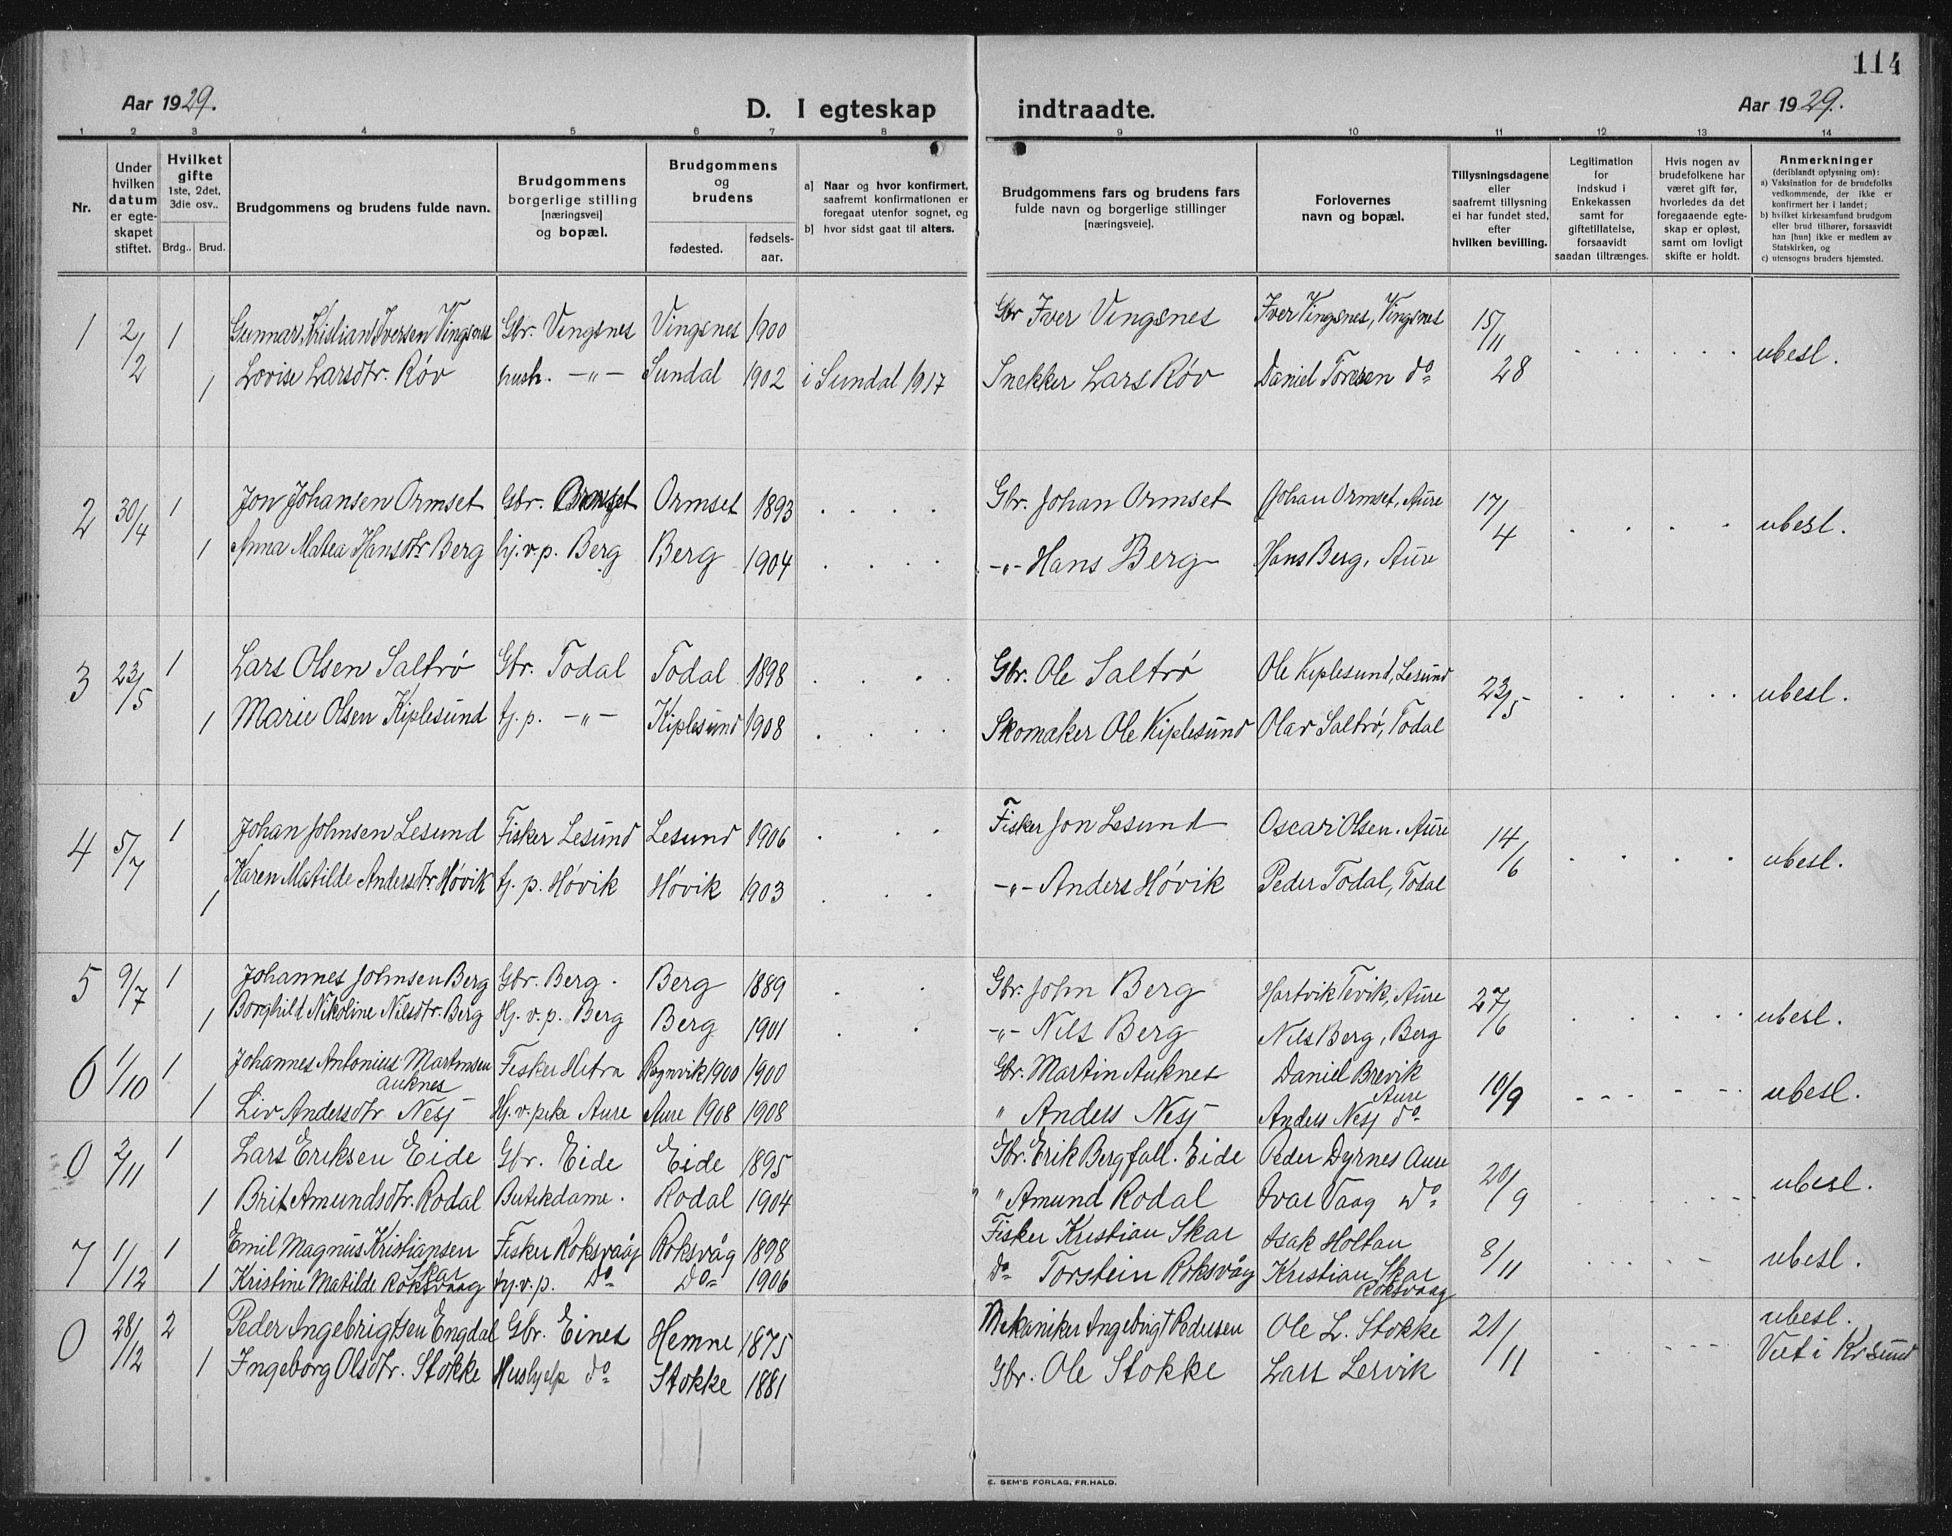 114
Aar 1929.
D. I egteskap indtraadte.
Aar 1929.
1 2 3 4 5 6 7 8 9 10 11 12 13 14
Nr.
Under hvilken datum er egte- skapet stiftet.
Hvilket gifte 1ste, 2det, 3die osv..
Brdg.. Brud.
Brudgommens og brudens fulde navn.
Brudgommens borgerlige stilling [næringsvei] og bopæl.
Brudgommens og brudens
fødested. fødsels- aar.
a] Naar og hvor konfirmert, saafremt konfirmationen er foregaat utenfor sognet, og
b] hvor sidst gaat til alters.
Brudgommens fars og brudens fars fulde navn og borgerlige stillinger [næringsveie].
Forlovernes navn og bopæl.
Tillysningsdagene eller saafremt tillysning ei har fundet sted, efter hvilken bevilling.
Legitimation for indskud i Enkekassen samt for giftetillatelse, forsaavidt saadan tiltrænges.
Hvis nogen av brudefolkene har været gift før, hvorledes da det foregaaende egte- skap er opløst, samt om lovligt skifte er holdt.
Anmerkninger (deriblandt oplysning om):
a) Vaksination for de brudefolks vedkommende, der ikke er konfirmert her i landet;
b) hvilket kirkesamfund brudgom eller brud tilhører, forsaavidt han [hun] ikke er medlem av Statskirken, og
c) utensogns bruders hjemsted.
1 2/2 1 Gunnar Kristian Iversen Vingsnes Gbr. Vingsnes Vingsnes 1900 Gbr Iver Vingsnes Iver Vingsnes, Vingsnes 15/11 28 ubesl.
1 Lovise Larsdtr. Røv hush. -"- Sundal 1902 i Sundal 1917 Snekker Lars Røv Daniel Toresen do
2 30/4 1 Jon Johansen Ormset Gbr. Ormset Ormset 1893 Gbr. Johan Ormset Johan Ormset, Aure 17/4 ubesl.
1 Anna Matea Hansdtr Berg hj.v.p. Berg Berg 1904 -"- Hans Berg Hans Berg, Aure
3 23/5 1 Lars Olsen Saltrø Gbr. Todal Todal 1898 Gbr. Ole Saltrø Ole Kiplesund, Lesund 23/5 ubesl.
1 Marie Olsen Kiplesund tj. p. -"- Kiplesund 1908 Skomaker Ole Kiplesund Olav Saltrø, Todal
4 5/7 1 Johan Johnsen Lesund Fisker Lesund Lesund 1906 Fisker Jon Lesund Oscar Olsen. Aure 14/6 ubesl.
1 Karen Matilde Andersdtr. Høvik tj. p. Høvik Høvik 1903 -"- Anders Høvik Peder Todal, Todal
5 9/7 1 Johannes Johnsen Berg Gbr. Berg. Berg 1889 Gbr. John Berg Hartvik Tevik, Aure 27/6 ubesl.
1 Borghild Nikoline Nilsdtr. Berg Hj. v. p. Berg Berg 1901 -"- Nils Berg Nils Berg, Berg
6 1/10 1 Johannes Antonius Martinsen Auknes Fisker Hitra 1900 1900 Gbr. Martin Auknes Daniel Brevik Aure 10/9 ubesl.
1 Liv Andersdtr Nesj Hj.v.pike Aure Aure 1908 1908 " Anders Nesj Anders Nesj do
0 2/11 1 Lars Eriksen Eide Gbr. Eide Eide 1895 Gbr. Erik Bergfall. Eide Peder Dyrnes Aure 20/9 ubesl.
1 Brit Amundsdtr. Rodal Butikdame. Rodal 1904 " Amund Rodal Ivar Vaag do
7 1/12 1 Emil Magnus Kristiansen Skar Fisker Roksvåg Roksvåg 1898 Fisker Kristian Skar Isak Holtan 8/11 ubesl.
1 Kristine Matilde Roksvaag hj.v.p. Do Do 1906 do Torstein Roksvåg Kristian Skar Roksvaag
0 28/12 2 Peder Ingebrigtsen Engdal Gbr. Eines Hemne 1875 Mekaniker Ingebrigt Pedersen Ole L. Stokke 21/11 ubesl.
1 Ingeborg Olsdtr. Stokke Hushjelp do Stokke 1881 Gbr. Ole Stokke Lars Lervik Viet i Kr sund
E. SEM'S FORLAG, FR.HALD.